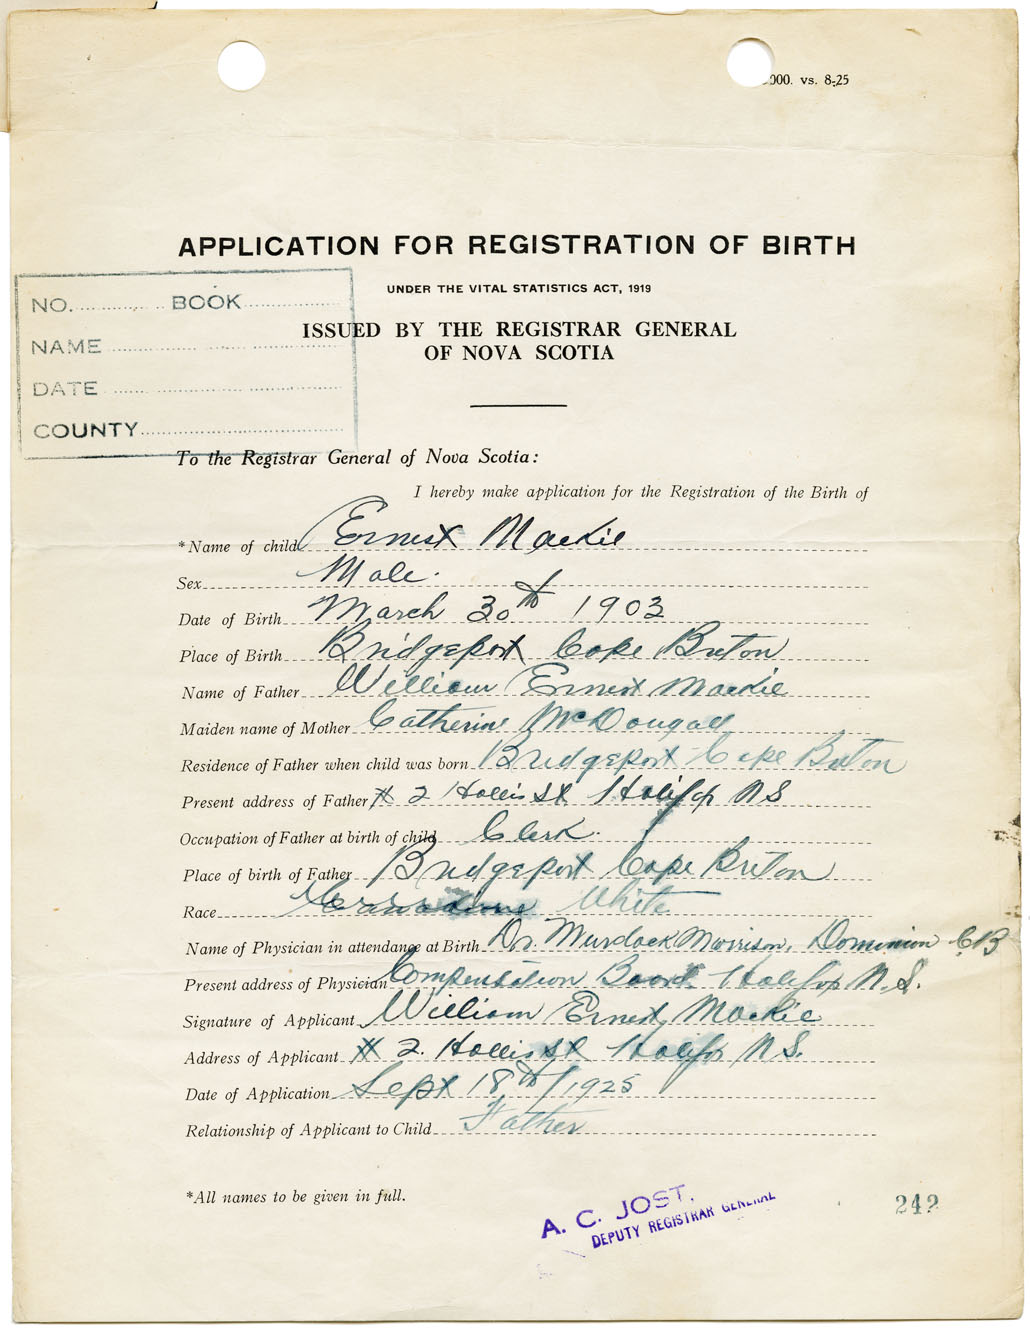 000. vs. 8-25
APPLICATION FOR REGISTRATION OF BIRTH
UNDER THE VITAL STATISTICS ACT, 1919
ISSUED BY THE REGISTRAR GENERAL
OF NOVA SCOTIA
NO. BOOK
NAME
DATE
COUNTY
To the Registrar General of Nova Scotia:
I hereby make application for the Registration of the Birth of
*Name of child Ernest Mackie
Sex Male.
Date of Birth March 30th 1903
Place of Birth Bridgeport Cape Breton
Name of Father William Ernest Mackie
Maiden name of Mother Catherine McDougall
Residence of Father when child was born Bridgeport Cape Breton
Present address of Father # 2 Hollis St Halifax N S
Occupation of Father at birth of child Clerk.
Place of birth of Father Bridgeport Cape Breton
Race White
Name of Physician in attendance at Birth Dr. Murdock Morrison, Dominion C.B
Present address of Physician Compensation Board Halifax N.S.
Signature of Applicant William Ernest Mackie
Address of Applicant # 2. Hollis St Halifax N S.
Date of Application Sept 18th/1925
Relationship of Applicant to Child Father
*All names to be given in full.
A. C. JOST.
DEPUTY REGISTRAR GENERAL
242